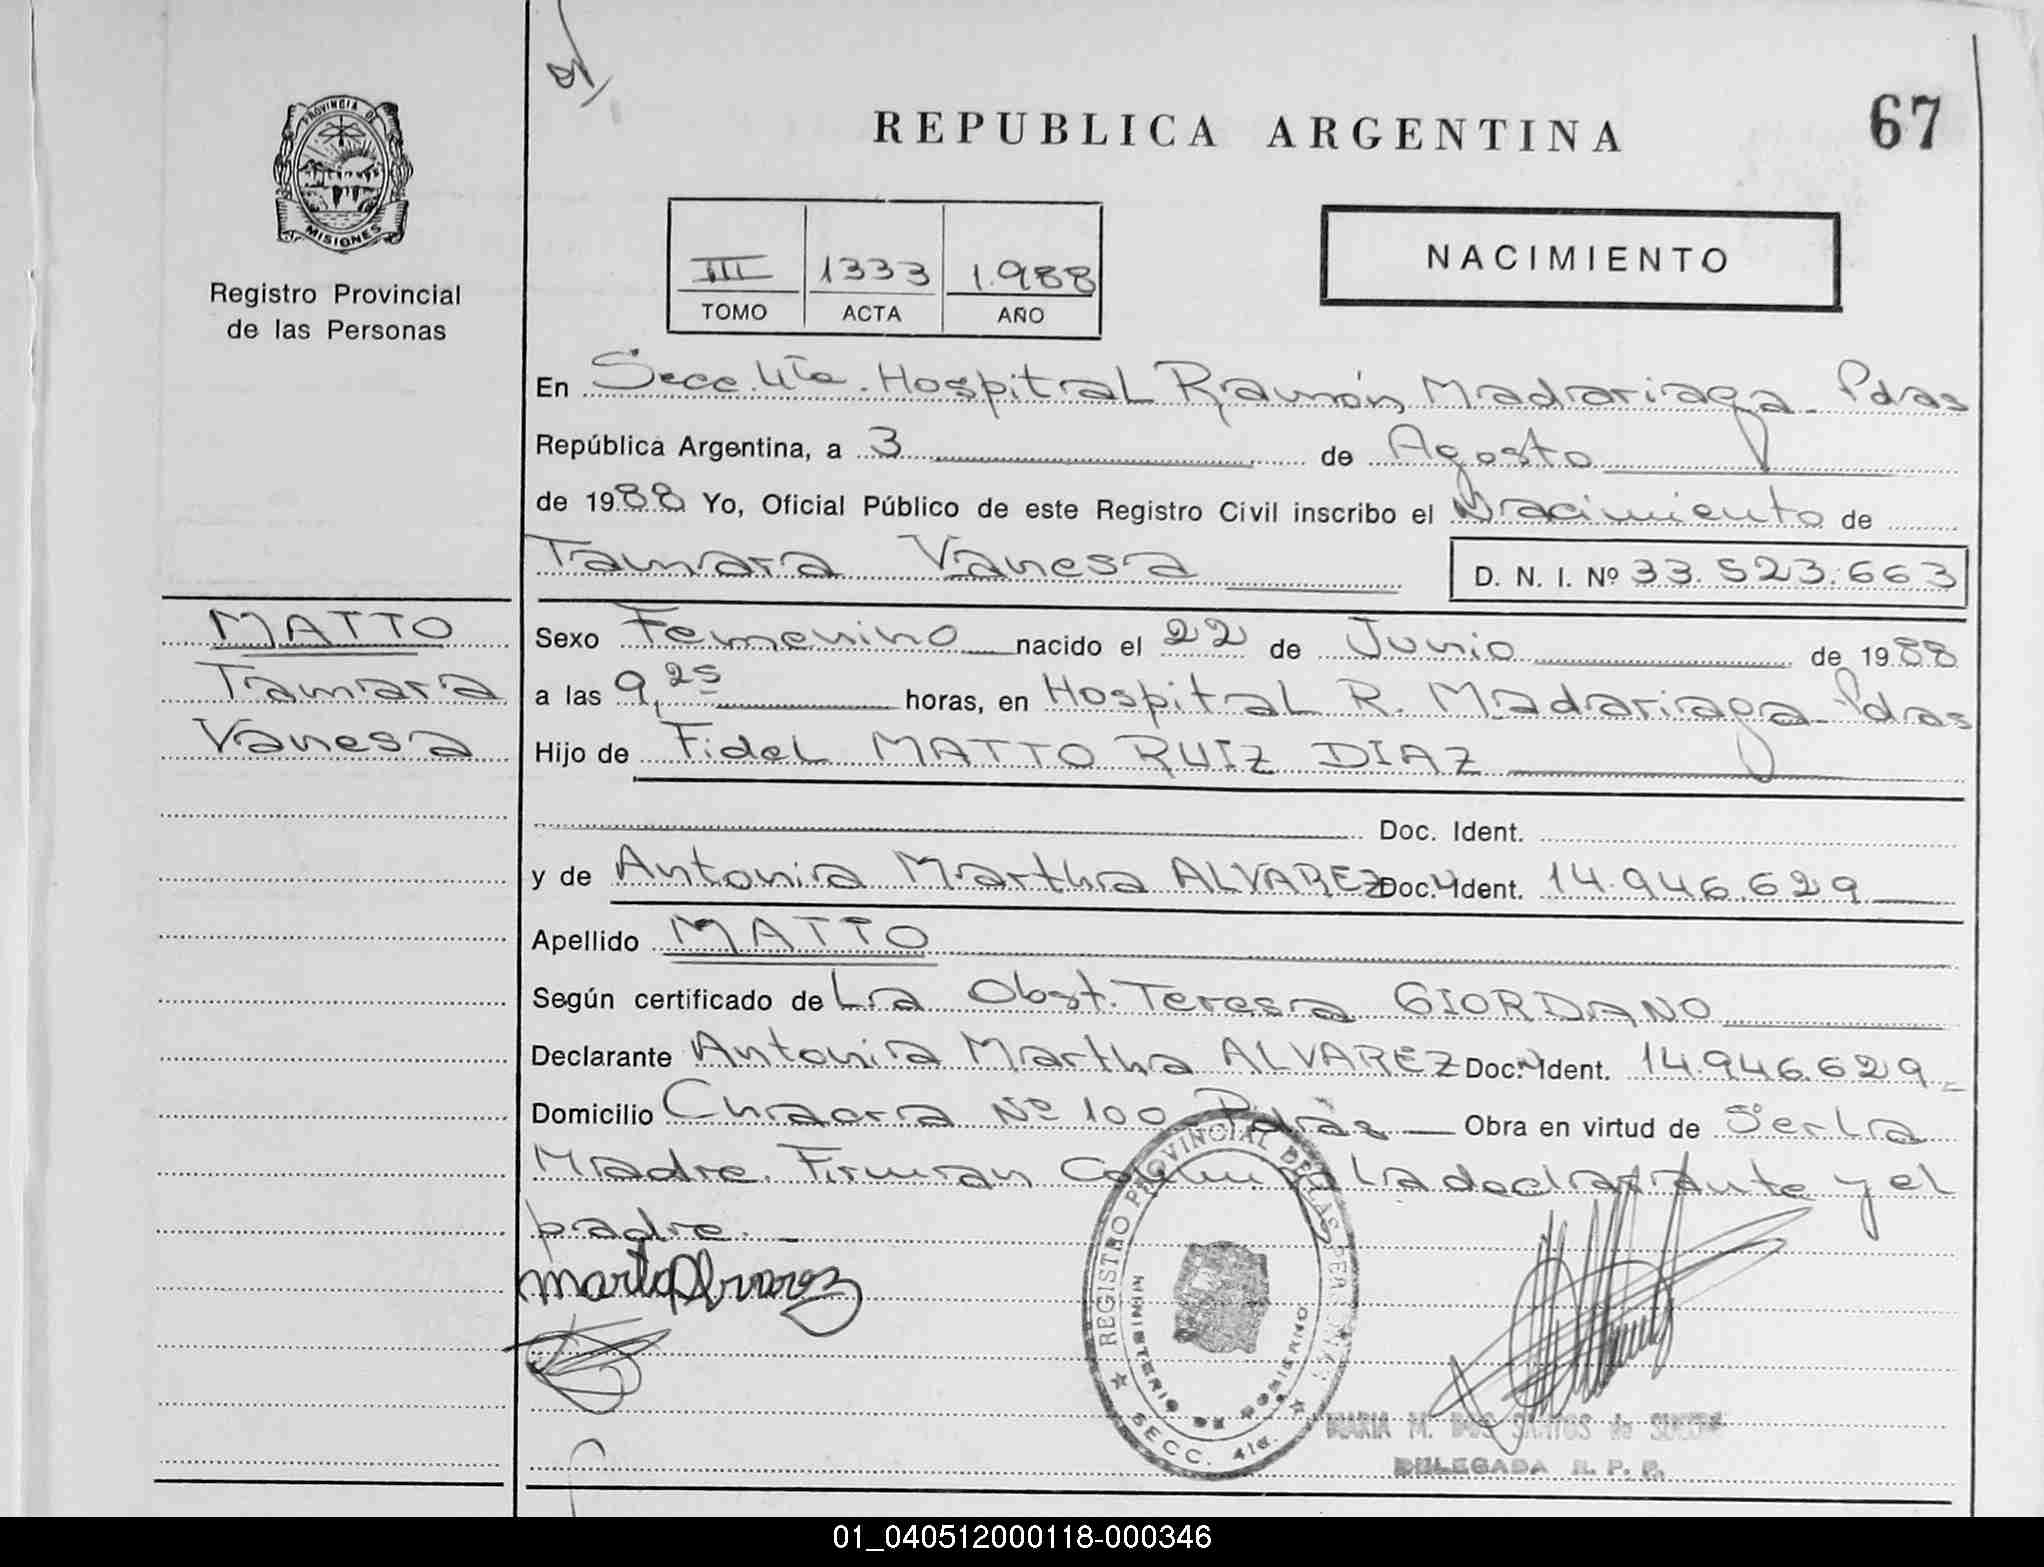 67
REPUBLICA ARGENTINA
PROVINCIA DE
MISIONES
Registro Provincial
de las Personas
III 1333 1.988
TOMO ACTA AÑO
NACIMIENTO
En Secc. 4ta. Hospital Ramón Madariaga - Pdas
República Argentina, a 3 de Agosto
de 1988 Yo, Oficial Público de este Registro Civil inscribo el Nacimiento de
Tamara Vanesa D. N. I. Nº 33.523.663
MATTO
Tamara
Vanesa
Sexo Femenino nacido el 22 de Junio de 1988
a las 9,25 horas, en Hospital R. Madariaga - Pdas
Hijo de Fidel MATTO RUIZ DIAZ
Doc. Ident.
y de Antonia Martha ALVAREZ Doc. Ident. 14.946.629
Apellido MATTO
Según certificado de La Obst. Teresa GIORDANO
Declarante Antonia Martha ALVAREZ Doc. Ident. 14.946.629
Domicilio Chacra Nº 100 Pdas Obra en virtud de Ser La
Madre. Firman La declarante y el
padre. -
Marta Alvarez
REGISTRO PROVINCIAL DE LAS PERSONAS
MINISTERIO DE GOBIERNO
SECC. 4ta.
MARIA M. DOS SANTOS de
DELEGADA R. P. P.
01_040512000118-000346